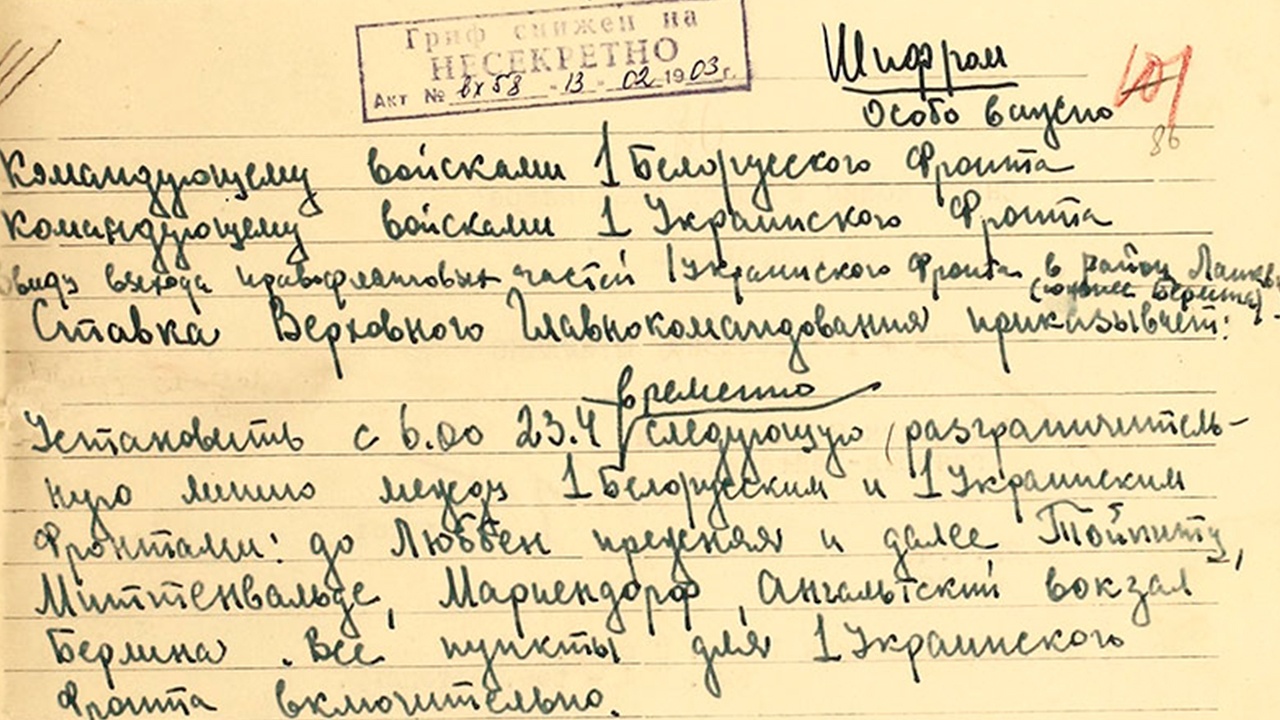 Гриф снижен на
НЕСЕКРЕТНО
Акт № вх58 - 13 - 02 1903 г.
Шифром
Особо важно
107
86
Командующему войсками 1 Белорусского Фронта
Командующему войсками 1 Украинского Фронта
Ввиду выхода правофланговых частей 1 Украинского Фронта в район Ланкви
(южнее Берлина)
Ставка Верховного Главнокомандования приказывает:
временно
Установить с 6.00 23.4 следующую разграничитель-
ную линию между 1 Белорусским и 1 Украинским
Фронтами: до Люббен прежняя и далее Тойпитц,
Миттенвальде, Мариендорф, Ангальтский вокзал
Берлина. Все пункты для 1 Украинского
Фронта включительно.